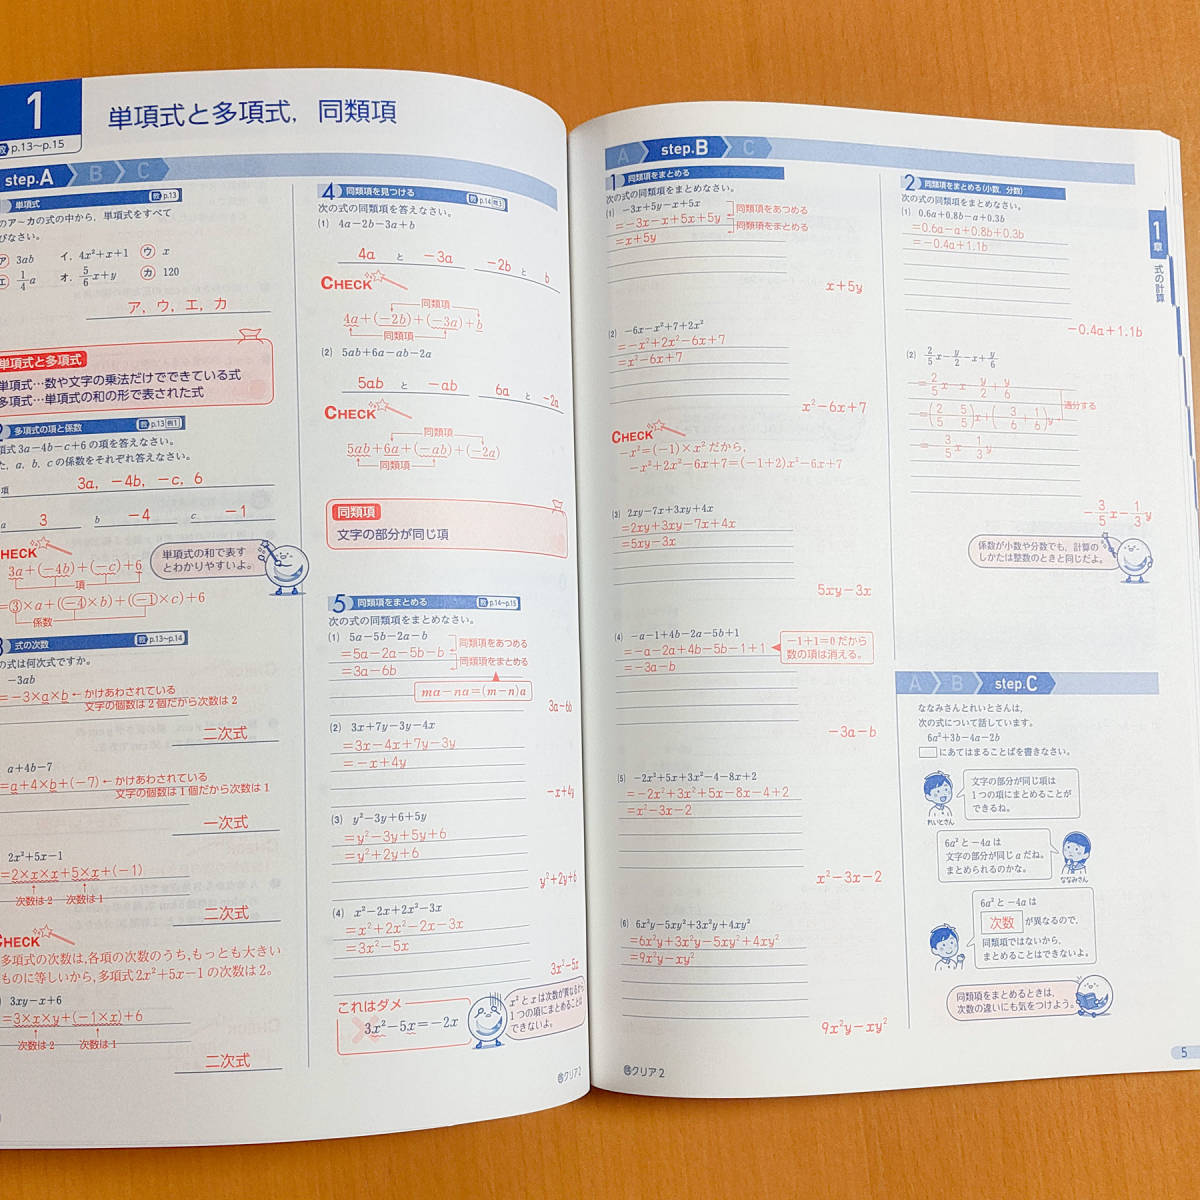 1
単項式と多項式，同類項
p.13〜p.15
step.A B C
単項式
p.13
のア〜カの式の中から，単項式をすべて
びなさい。
ア 3ab イ. 4x²+x+1 ウ x
エ 1/4 a オ. 5/6 x+y カ 120
ア，ウ，エ，カ
単項式と多項式
単項式…数や文字の乗法だけでできている式
多項式…単項式の和の形で表された式
2 多項式の項と係数
p.13 例1
項式3a−4b−c+6の項を答えなさい。
た，a，b，cの係数をそれぞれ答えなさい。
項 3a，−4b，−c，6
a 3 b −4 c −1
CHECK
3a+(−4b)+(−c)+6
項
=3×a+(−4)×b)+(−1)×c)+6
係数
単項式の和で表す
とわかりやすいよ。
3 式の次数
p.13〜p.14
の式は何次式ですか。
−3ab
=−3×a×b ←かけあわされている
文字の個数は2個だから次数は2
二次式
a+4b−7
=a+4×b+(−7) ←かけあわされている
文字の個数は1個だから次数は1
一次式
2x²+5x−1
=2×x×x+5×x+(−1)
次数は2 次数は1
二次式
CHECK
多項式の次数は，各項の次数のうち，もっとも大きい
ものに等しいから，多項式2x²+5x−1の次数は2。
3xy−x+6
=3×x×y+(−1×x)+6
次数は2 次数は1
二次式
4 同類項を見つける
p.14 例3
次の式の同類項を答えなさい。
(1) 4a−2b−3a+b
4a と −3a −2b と b
CHECK
同類項
4a+(−2b)+(−3a)+b
同類項
(2) 5ab+6a−ab−2a
5ab と −ab 6a と −2a
CHECK
同類項
5ab+6a+(−ab)+(−2a)
同類項
同類項
文字の部分が同じ項
5 同類項をまとめる
p.14〜p.15
次の式の同類項をまとめなさい。
(1) 5a−5b−2a−b
=5a−2a−5b−b 同類項をあつめる
=3a−6b 同類項をまとめる
ma−na=(m−n)a
3a−6b
(2) 3x+7y−3y−4x
=3x−4x+7y−3y
=−x+4y
−x+4y
(3) y²−3y+6+5y
=y²−3y+5y+6
=y²+2y+6
y²+2y+6
(4) x²−2x+2x²−3x
=x²+2x²−2x−3x
=3x²−5x
3x²−5x
これはダメ
3x²−5x=−2x
x²とxは次数が異なるから
1つの項にまとめることは
できないよ。
クリア2
A step.B C
1 同類項をまとめる
次の式の同類項をまとめなさい。
(1) −3x+5y−x+5x
=−3x−x+5x+5y 同類項をあつめる
=x+5y 同類項をまとめる
x+5y
(2) −6x−x²+7+2x²
=−x²+2x²−6x+7
=x²−6x+7
x²−6x+7
CHECK
−x²=(−1)×x²だから，
−x²+2x²−6x+7=(−1+2)x²−6x+7
(3) 2xy−7x+3xy+4x
=2xy+3xy−7x+4x
=5xy−3x
5xy−3x
(4) −a−1+4b−2a−5b+1
=−a−2a+4b−5b−1+1
=−3a−b
−1+1=0だから
数の項は消える。
−3a−b
(5) −2x²+5x+3x²−4−8x+2
=−2x²+3x²+5x−8x−4+2
=x²−3x−2
x²−3x−2
(6) 6x²y−5xy²+3x²y+4xy²
=6x²y+3x²y−5xy²+4xy²
=9x²y−xy²
9x²y−xy²
クリア2
2 同類項をまとめる(小数，分数)
次の式の同類項をまとめなさい。
(1) 0.6a+0.8b−a+0.3b
=0.6a−a+0.8b+0.3b
=−0.4a+1.1b
−0.4a+1.1b
(2) 2/5 x−y/2−x+y/6
=2/5 x−x−y/2+y/6
=(2/5−5/5)x+(−3/6+1/6)y 通分する
=−3/5 x−1/3 y
−3/5 x−1/3 y
係数が小数や分数でも，計算の
しかたは整数のときと同じだよ。
A B step.C
ななみさんとれいとさんは，
次の式について話しています。
6a²+3b−4a−2b
□にあてはまることばを書きなさい。
文字の部分が同じ項は
1つの項にまとめることが
できるね。
れいとさん
6a²と−4aは
文字の部分が同じaだね。
まとめられるのかな。
ななみさん
6a²と−4aは
次数 が異なるので，
同類項ではないから，
まとめることはできないよ。
同類項をまとめるときは，
次数の違いにも気をつけよう。
1章 式の計算
5